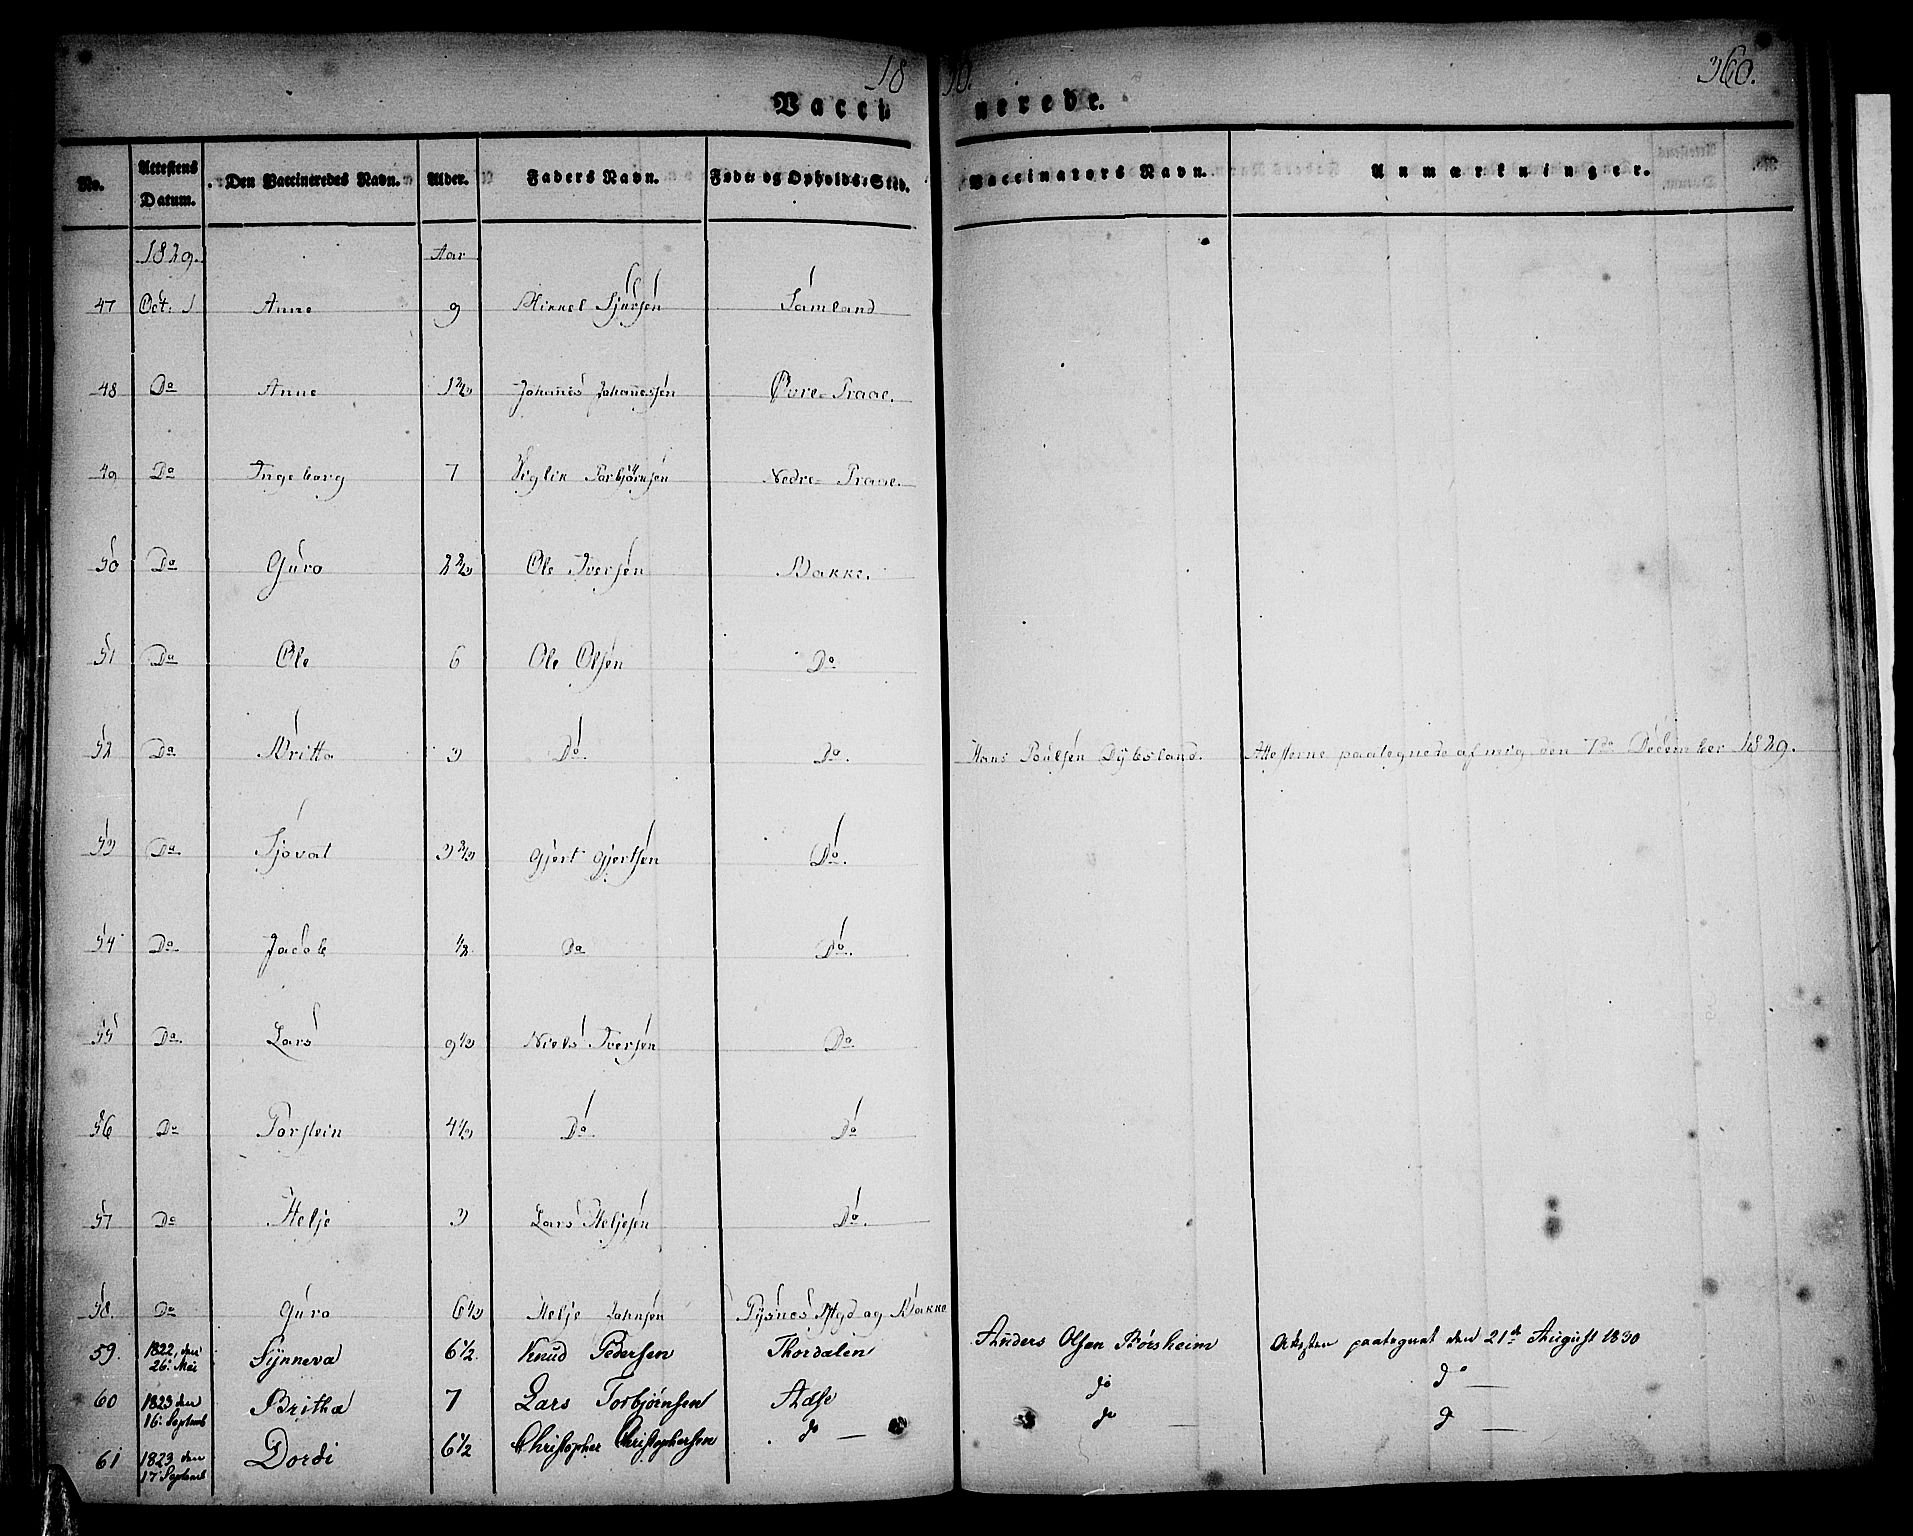 18 30. 360.
Vacci nerede.
No. Attestens Datum. Den Vaccineredes Navn. Alder. Faders Navn. Føde og Opholds-Sted. Vaccinators Navn. Anmærkninger.
1829. Aar
47 Oct: 1 Anne 9 Mikkel Sjursen Samland
48 Do Anne 1 2/3 Johannes Johannessen Øvre-Traae.
49 Do Ingeborg 7 Viglik Torbjørnsen Nedre-Traae.
50 Do Guro 2 2/3 Ole Iversen Bakke.
51 Do Ole 6 Ole Olsen Do
52 Do Britta 3 Do Do. Hans Poulsen Dybsland. Attesterne paategnede af mig den 7de December 1829.
53 Do. Sjovat 3 2/3 Gjert Gjertsen Do.
54 Do Jacob 1/2 Do Do.
55 Do. Lars 9 1/3 Niels Iversen Do
56 Do Torstein 4 1/3 Do Do
57 Do Helje 3 Lars Heljesen Do.
58. Do Guro 6 1/3 Helje Johnsen Tysnes og Bakke
59. 1822, den 26: Mai Synneva 6 1/2 Knud Pedersen Thordalen Anders Olsen Børsheim Attesten paategnet den 21de August 1830
60 1823 den 16: Septemb Britha 7 Lars Torbjørnsen Aase do do —
61 1823 den 17 Septemb Dordi 6 1/2 Christopher Christophersen do — do — do —